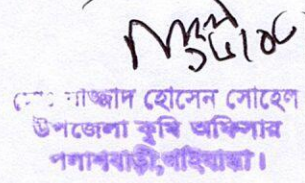 মোঃ সাজ্জাদ হোসেন সোহেল
উপজেলা কৃষি অফিসার
পলাশবাড়ী,গাইবান্ধা।